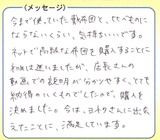 (メッセージ)
今まで使っていた敷布団と、比べものに
ならないくらい、気持ちいいです。
ネットで高額な布団を購入することに
初めは迷いましたが、店長さんの
動画での説明が分かりやすく、とても
納得のいくものでしたので、購入を
決めました。今は、ヨネタさんに出会
えたことに、満足しています。